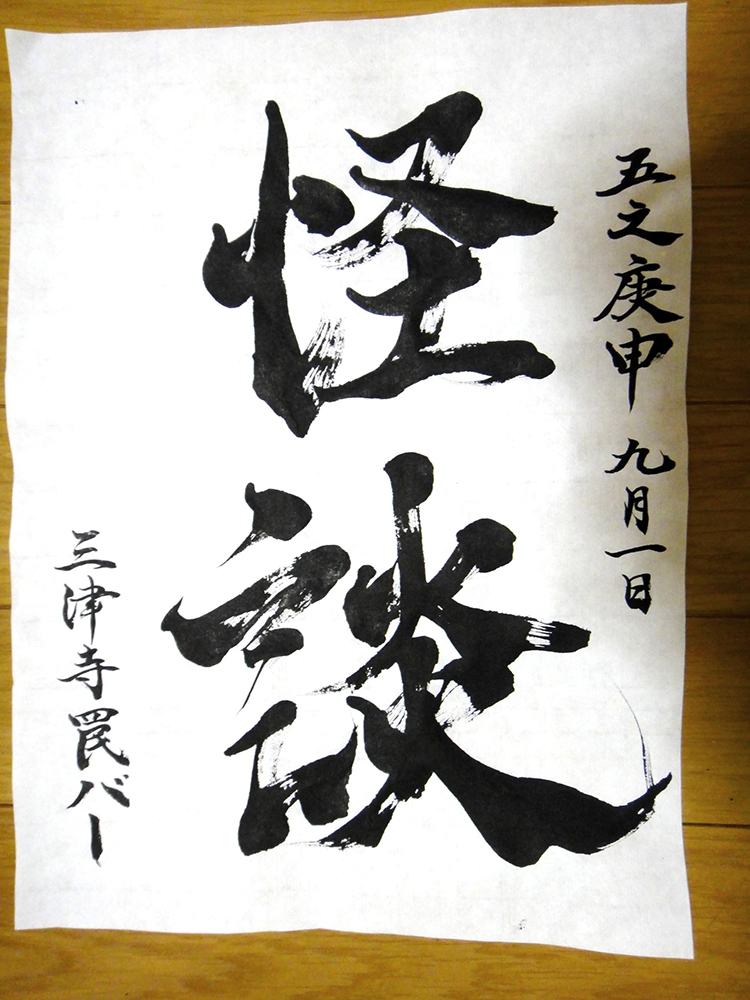 五之庚申 九月一日
怪談
三津寺罠バー